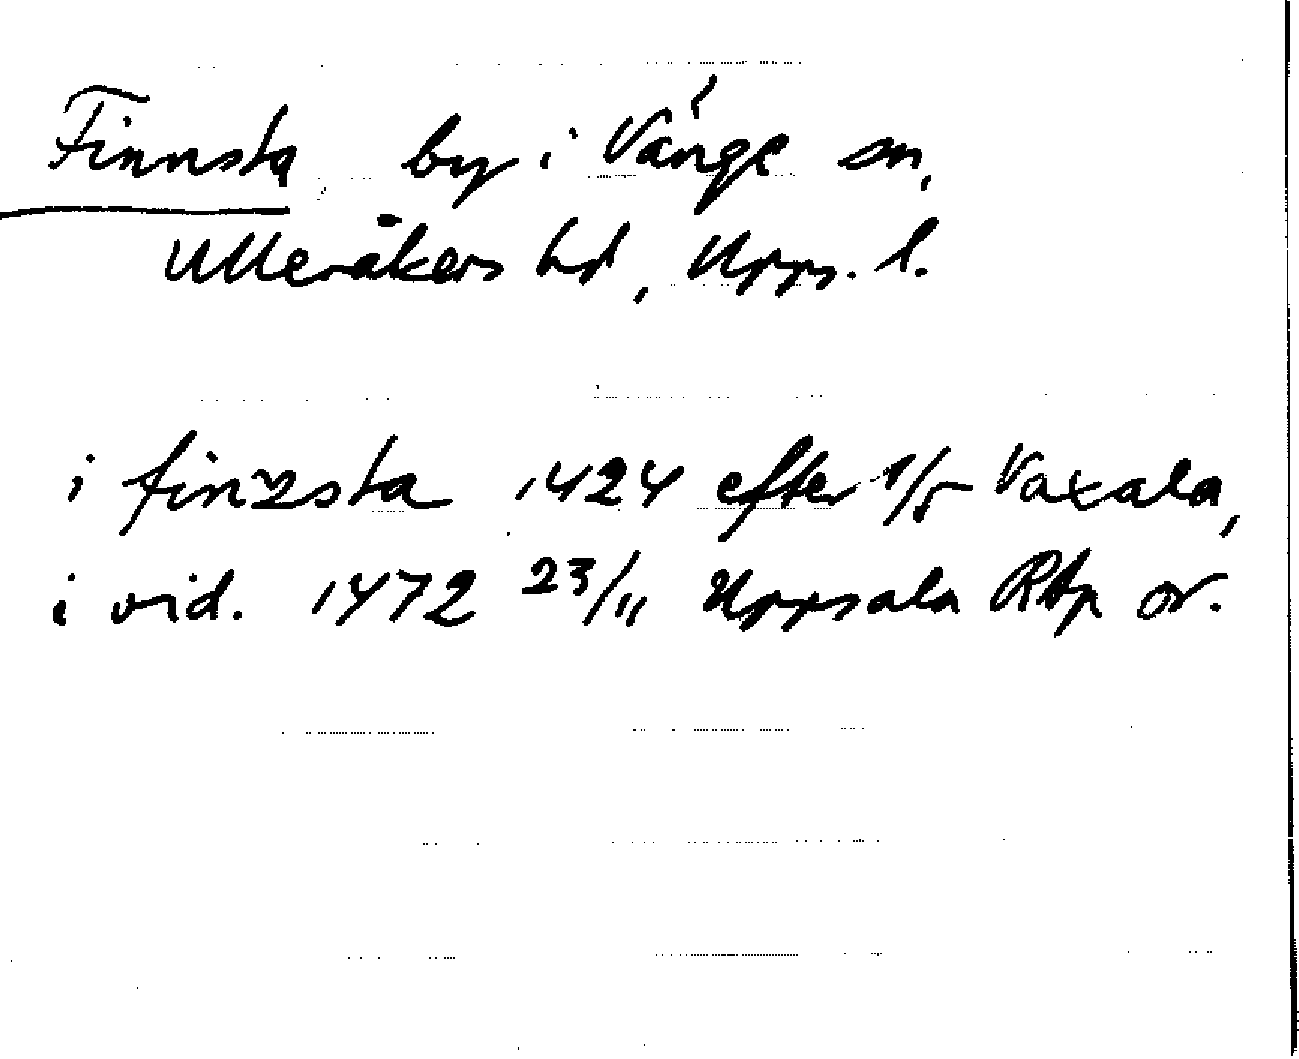 Finnsta by i Vänge sn,
Ulleråkers hd, Upps. l.
i finzsta 1424 efter 1/5 Vaxala,
i vid. 1472 23/11 Uppsala RAp or.